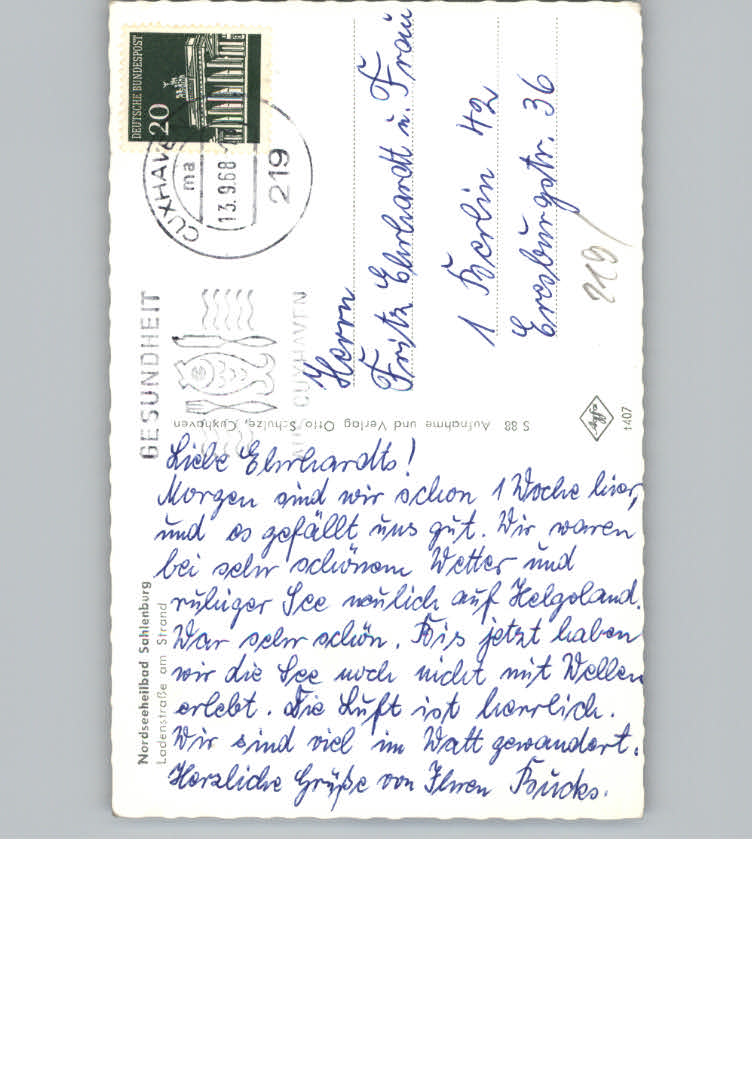 DEUTSCHE BUNDESPOST
20
CUXHAVEN
ma
13.9.68
219
GESUNDHEIT
AUS CUXHAVEN
Herrn
Fritz Ehrhardt u. Frau
1 Berlin 42
Eresburgstr. 36
219/
S 88 Aufnahme und Verlag Otto Schulze, Cuxhaven
1407
Liebe Ehrhardts!
Morgen sind wir schon 1 Woche hier,
und es gefällt uns gut. Wir waren
bei sehr schönem Wetter und
ruhiger See neulich auf Helgoland.
War sehr schön. Bis jetzt haben
wir die See noch nicht mit Wellen
erlebt. Die Luft ist herrlich.
Wir sind viel im Watt gewandert.
Herzliche Grüße von Ihren
Nordseeheilbad Sahlenburg
Ladenstraße am Strand